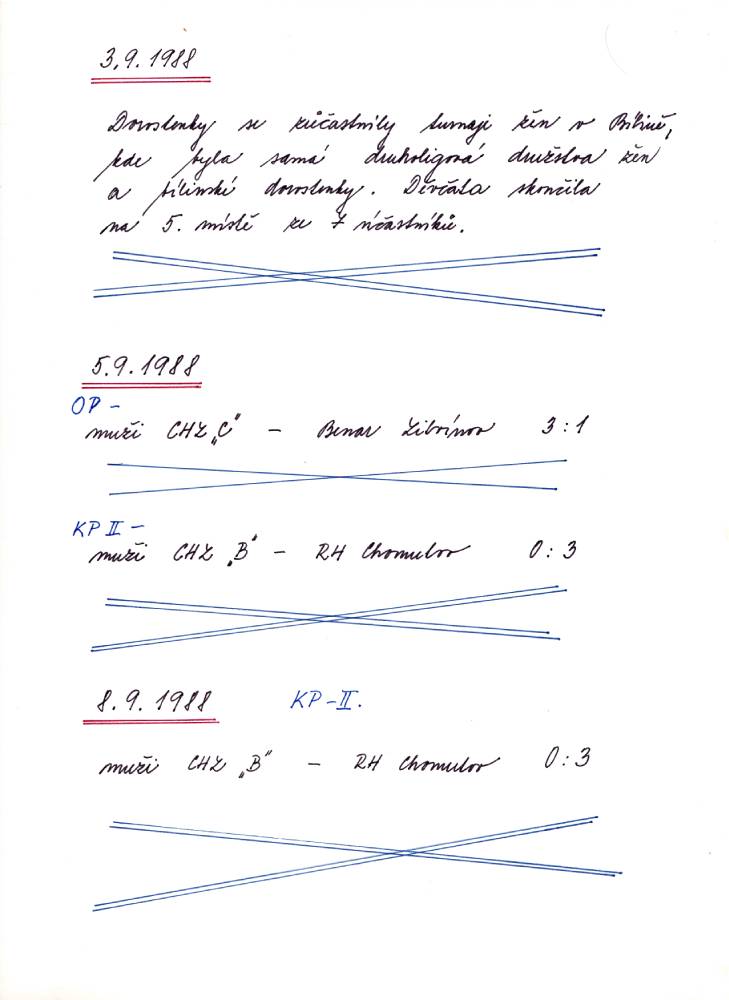 3.9.1988
Dorostenky se zúčastnily turnaje žen v Bílině,
kde byla samá druholigová družstva žen
a bílinské dorostenky. Děvčata skončila
na 5. místě ze 7 účastníků.
5.9.1988
OP -
muži CHZ „C" - Benar Litvínov 3:1
KP II -
muži CHZ „B" - RH Chomutov 0:3
8.9.1988 KP-II.
muži CHZ „B" - RH Chomutov 0:3